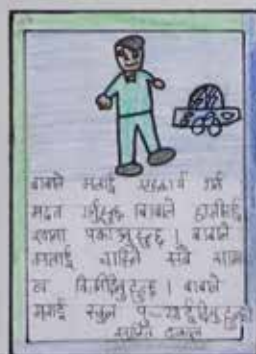 बाबाले मलाई गृहकार्य गर्न
मद्दत गर्नुहुन्छ । बाबाले हामीलाई
खाना पकाउनुहुन्छ । बाबाले
मलाई चाहिने सबै सामान
किनीदिनुहुन्छ । बाबाले
मलाई स्कुल पुर्‍याईदिनुहुन्छ ।